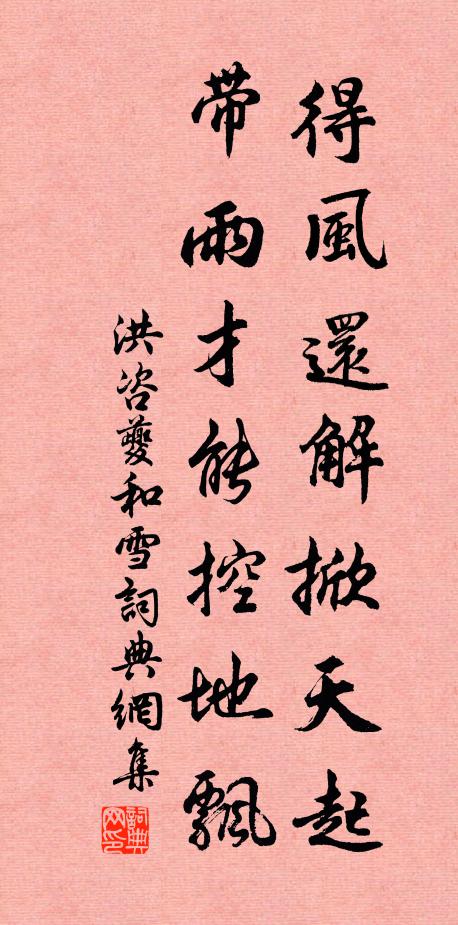 得風還解掀天起
帶雨才能控地飄
洪咨夔和雪詞典網集
詞典网印